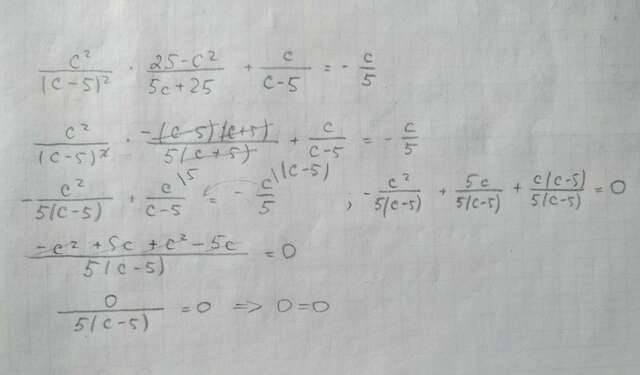 c²/(c-5)² · (25-c²)/(5c+25) + c/(c-5) = - c/5
c²/(c-5)² · (-(c-5)(c+5))/(5(c+5)) + c/(c-5) = - c/5
- c²/(5(c-5)) + c\5/(c-5) = - c\(c-5)/5 ; - c²/(5(c-5)) + 5c/(5(c-5)) + c(c-5)/(5(c-5)) = 0
(-c² + 5c + c² - 5c)/(5(c-5)) = 0
0/(5(c-5)) = 0 => 0=0